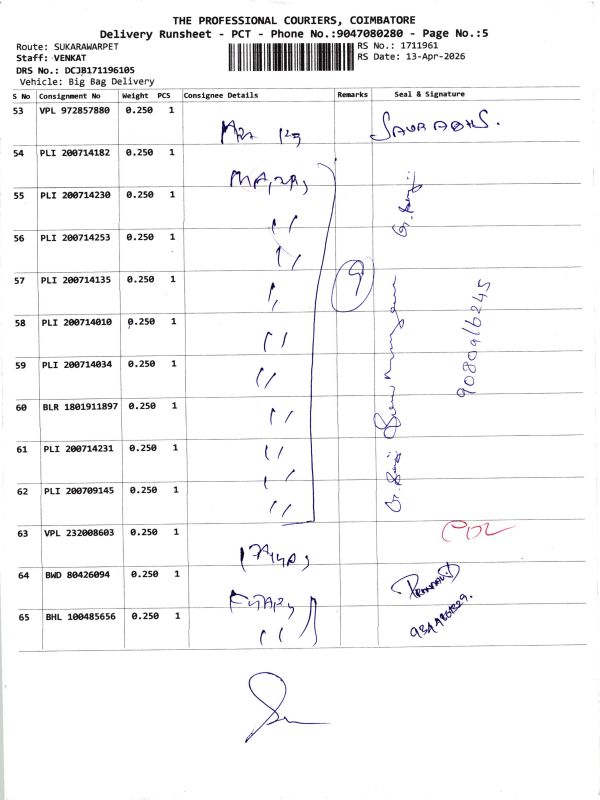 THE PROFESSIONAL COURIERS, COIMBATORE
Delivery Runsheet - PCT - Phone No.:9047080280 - Page No.:5
Route: SUKARAWARPET
Staff: VENKAT
DRS No.: DCJB171196105
Vehicle: Big Bag Delivery
RS No.: 1711961
RS Date: 13-Apr-2026
S No Consignment No Weight PCS Consignee Details Remarks Seal & Signature
53 VPL 972857880 0.250 1
SAURABH S.
54 PLI 200714182 0.250 1
55 PLI 200714230 0.250 1 "
56 PLI 200714253 0.250 1 "
57 PLI 200714135 0.250 1 " 9
58 PLI 200714010 0.250 1 "
59 PLI 200714034 0.250 1 "
60 BLR 1801911897 0.250 1 "
61 PLI 200714231 0.250 1 "
62 PLI 200709145 0.250 1 "
9080916245
63 VPL 232008603 0.250 1
64 BWD 80426094 0.250 1
65 BHL 100485656 0.250 1 "